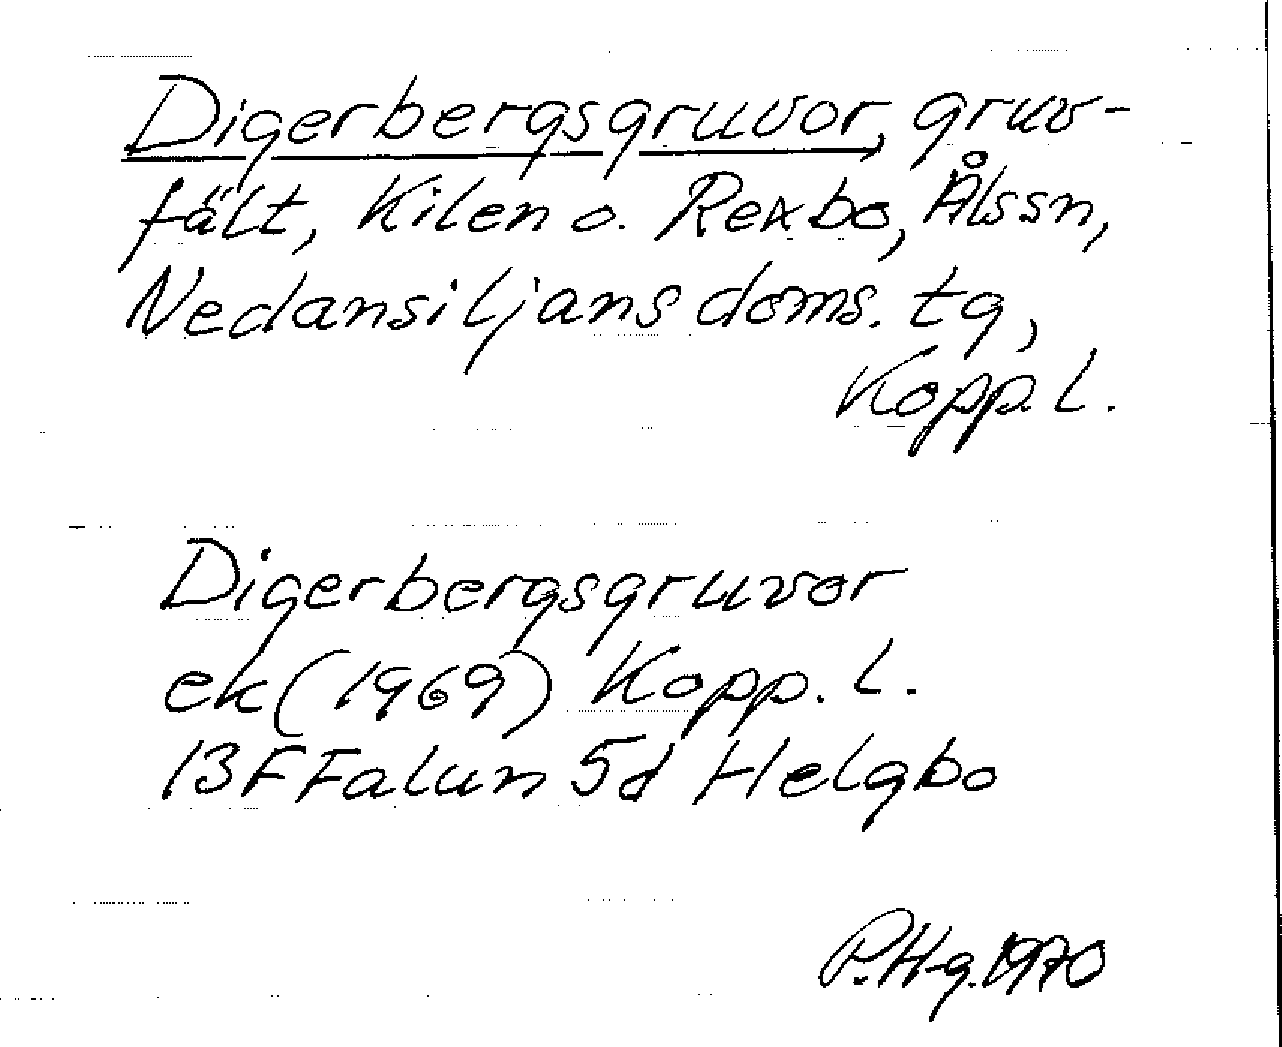 Digerbergsgruvor, gruv-
fält, Kilen o. Rexbo, Ålssn,
Nedansiljans doms. tg,
Kopp. l.
Digerbergsgruvor
ek (1969) Kopp. l.
13F Falun 5d Helgbo
P. H-g. 1970